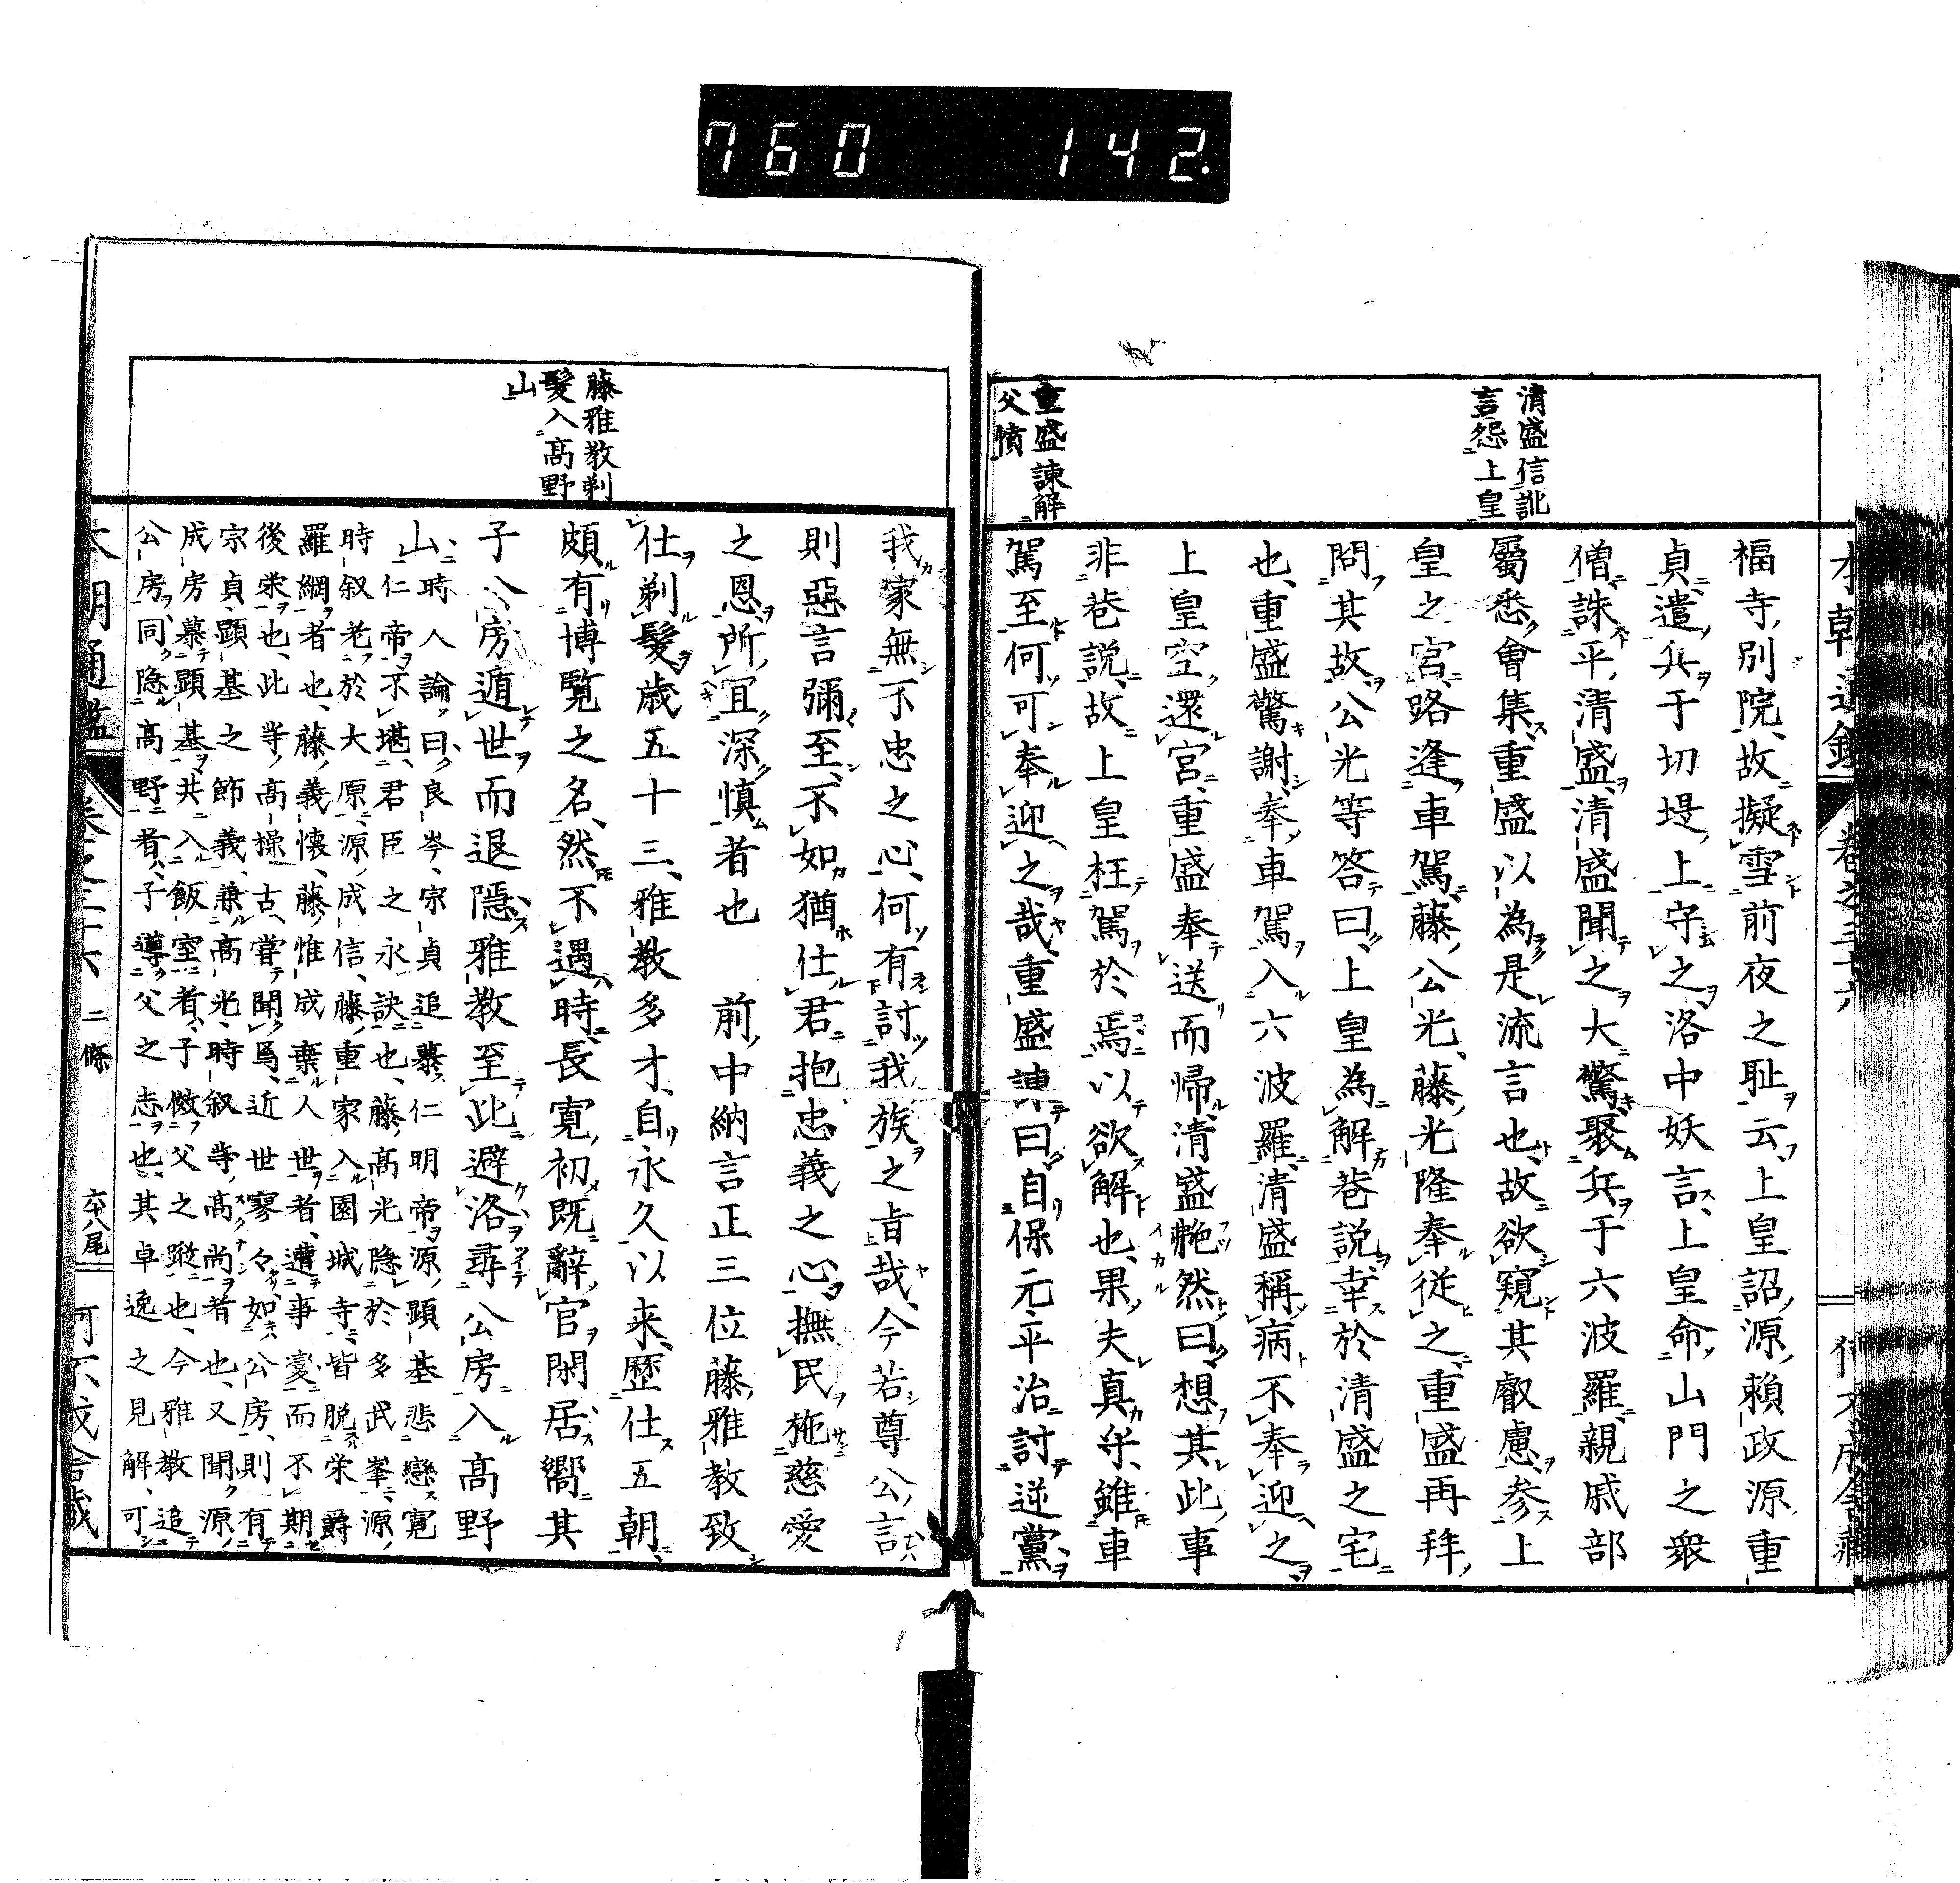 760 142.
本朝通鑑 卷之三十六
清盛信訛
言怨上皇
重盛諫解
父憤
福寺別院、故擬雪前夜之耻云、上皇詔源賴政源重
貞、遣兵于切堤、上守之、洛中妖言、上皇命山門之衆
僧誅平清盛、清盛聞之大驚、聚兵于六波羅、親戚部
屬悉會集、重盛以為是流言也、故欲窺其叡慮、參上
皇之宮、路逢車駕、藤公光、藤光隆奉從之、重盛再拜
問其故、公光等答曰、上皇為解巷説、幸於清盛之宅
也、重盛驚謝、奉車駕入六波羅、清盛稱病不奉迎之
上皇空還宮、重盛奉送而歸、清盛艴然曰、想其此事
非巷説、故上皇枉駕於焉、以欲解也、果夫真乎、雖車
駕至何可奉迎之哉、重盛諫曰、自保元平治討逆黨、
藤雅教剃
髮入髙野
山
我家無不忠之心、何有討我族之旨哉、今若尊公言
則惡言彌至、不如猶仕君抱忠義之心、撫民施慈愛
之恩、所宜深慎者也 前中納言正三位藤雅教致
仕剃髮、歳五十三、雅教多才、自永久以来、歷仕五朝、
頗有博覽之名、然不遇時、長寛初既辭官閑居、嚮其
子公房遁世而退隱、雅教至此避洛尋公房入髙野
山、時人論曰、良岑宗貞追慕仁明帝、源顯基悲戀寛
仁帝、不堪君臣之永訣也、藤髙光隱於多武峯、源
時叙老於大原、源成信、藤重家入園城寺、皆脱栄爵
羅網者也、藤義懷、藤惟成棄人世者、遭事變而不期
後榮也、此等髙操、古嘗聞焉、近世寥々、如公房則有
宗貞、顯基之節義、兼髙光、時叙等髙尚者也、又聞、源
成房慕顯基共入飯室者、子倣父之蹤也、今雅教追
公房同隱髙野者、子導父之志也、其卓逸之見解、可
本朝通鑑 卷之三十六 二條 六十八尾